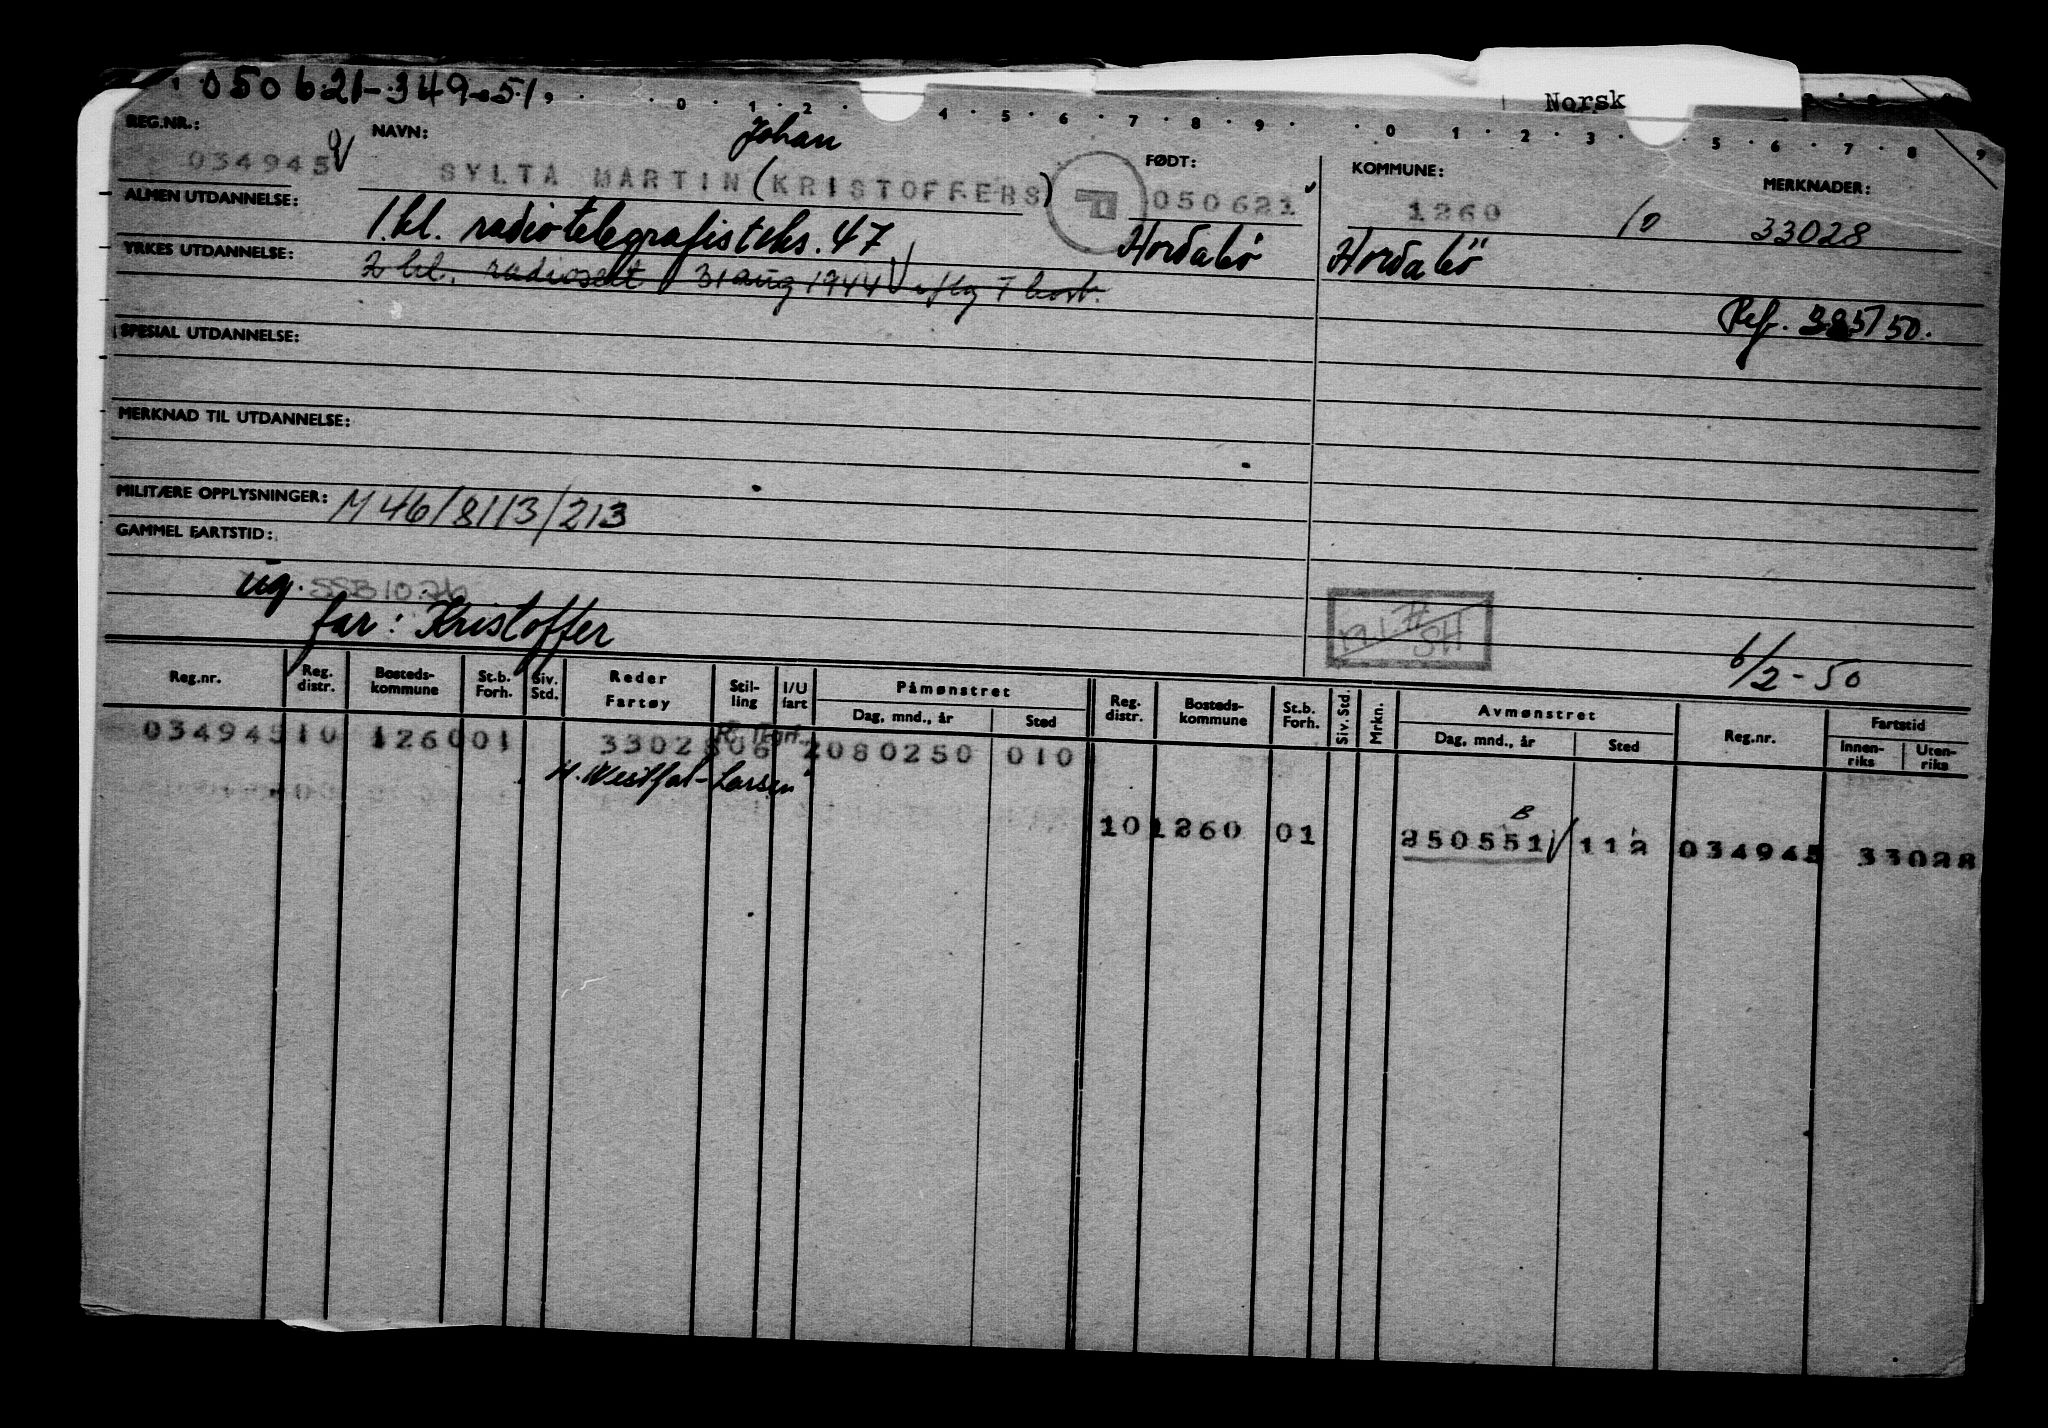 050621-349-51,
Norsk
0 · 1 · 2 · 4 · 5 · 6 · 7 · 8 · 9 · 0 · 1 · 2 · 3 · 5 · 6 · 7 · 8 · 9
REG.NR.: NAVN: Johan FØDT: KOMMUNE: MERKNADER:
034945 SYLTA MARTIN (KRISTOFFERS) 050621 1260 10 33028
ALMEN UTDANNELSE: 1. kl. radiotelegrafisteks. 47 Hordabø Hordabö
YRKES UTDANNELSE: 2 kl. radiosert 31 aug 1944
Ref. 325/50.
SPESIAL UTDANNELSE:
MERKNAD TIL UTDANNELSE:
MILITÆRE OPPLYSNINGER: M46/8113/213
GAMMEL FARTSTID:
ug. SSB 10.
far: Kristoffer
6/2-50
Reg.nr. Reg. distr. Bosteds-kommune St.b. Forh. Siv. Std. Reder Fartøy Stil-ling I/U fart Påmønstret Dag, mnd., år Sted Reg. distr. Bosteds-kommune St.b. Forh. Siv. Std. Mrkn. Avmønstret Dag, mnd., år Sted Reg.nr. Fartstid Innen-riks Uten-riks
034945 10 1260 01 33028 06 2 080250 010
H. Westfal-Larsen
B
10 1260 01 250551 112 034945 33028